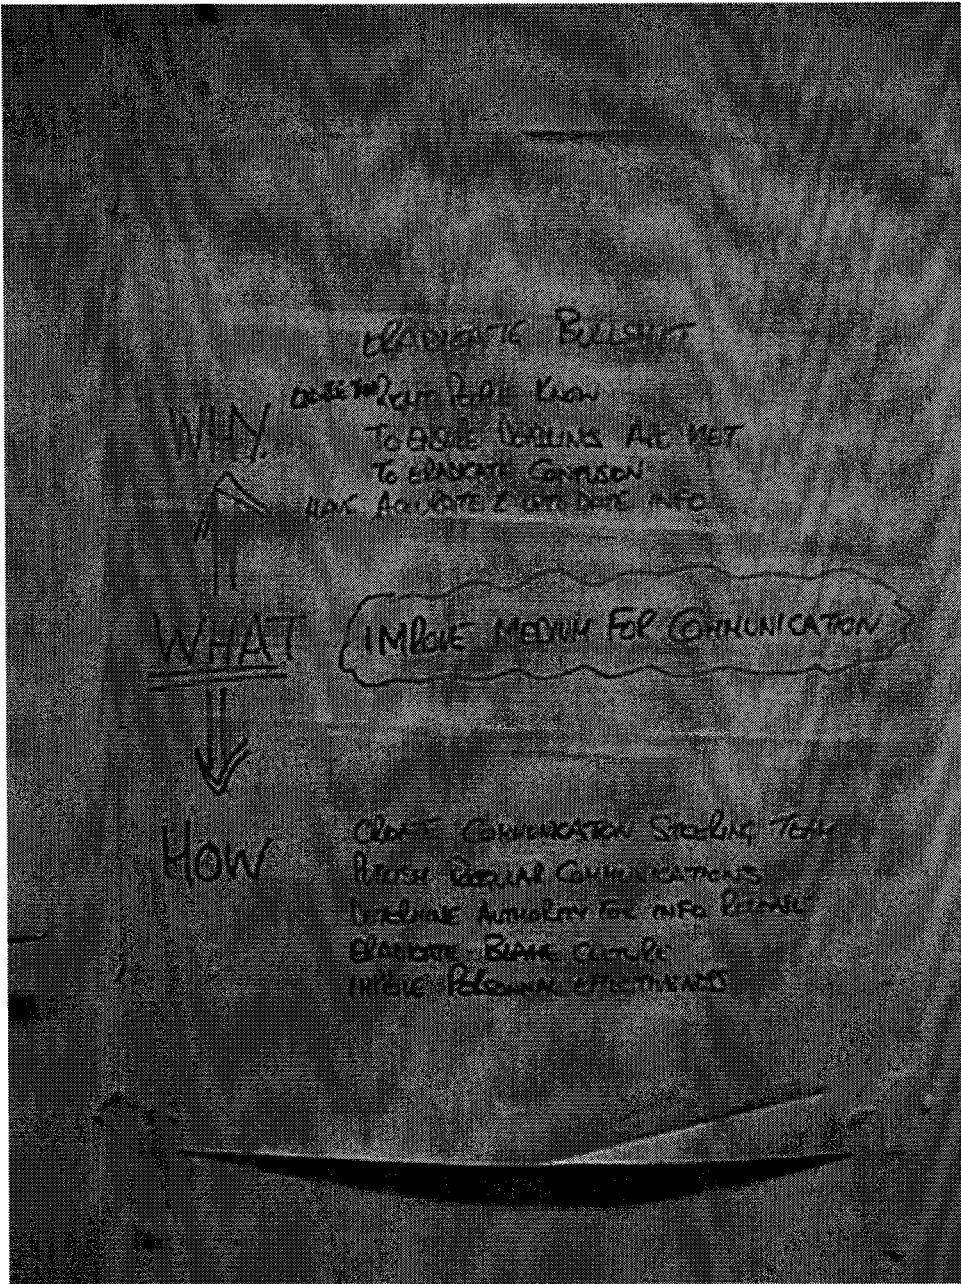 ERADICATE BULLSHIT
RIGHT PEOPLE KNOW
WHY.
TO ENSURE DEADLINES ARE MET
TO ERADICATE CONFUSION
HAVE ACCURATE & UPTO DATE INFO
WHAT
IMPROVE MEDIUM FOR COMMUNICATION
HOW
CREATE COMMUNICATION STEERING TEAM
PUBLISH REGULAR COMMUNICATIONS
DETERMINE AUTHORITY FOR INFO RELEASE
ERADICATE BLAME CULTURE
IMPROVE PERSONNAL EFFECTIVENESS